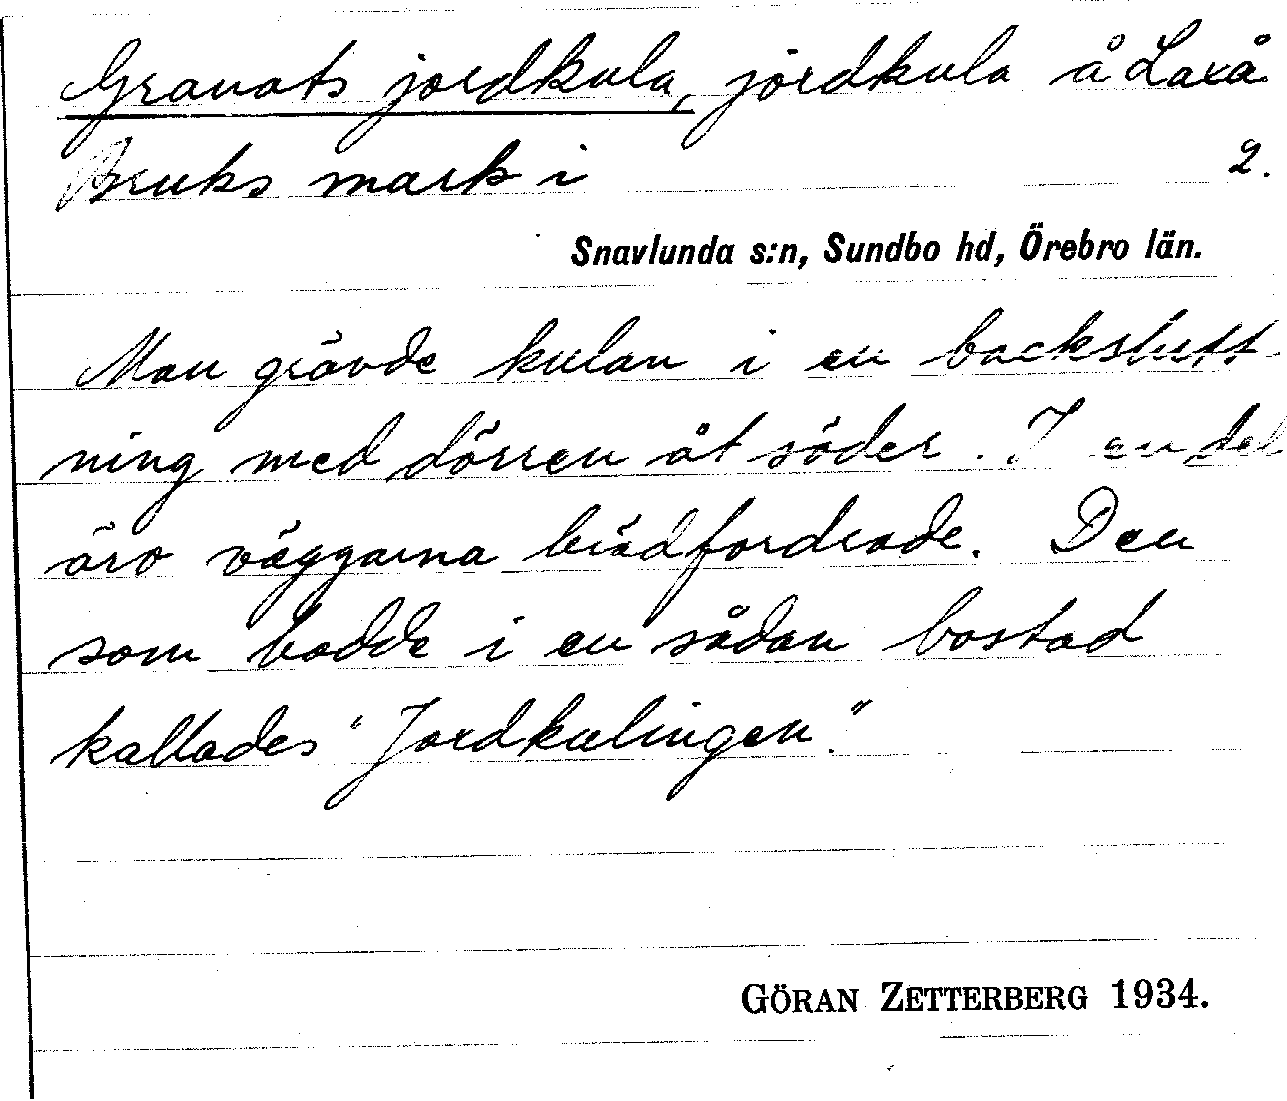 Granats jordkula, jordkula å Laxå
Bruks mark i 2.
Snavlunda s:n, Sundbo hd, Örebro län.
Man grävde kulan i en backslutt-
ning med dörren åt söder. I en del
äro väggarna brädfordrade. Den
som bodde i en sådan bostad
kallades "Jordkulingen."
GÖRAN ZETTERBERG 1934.